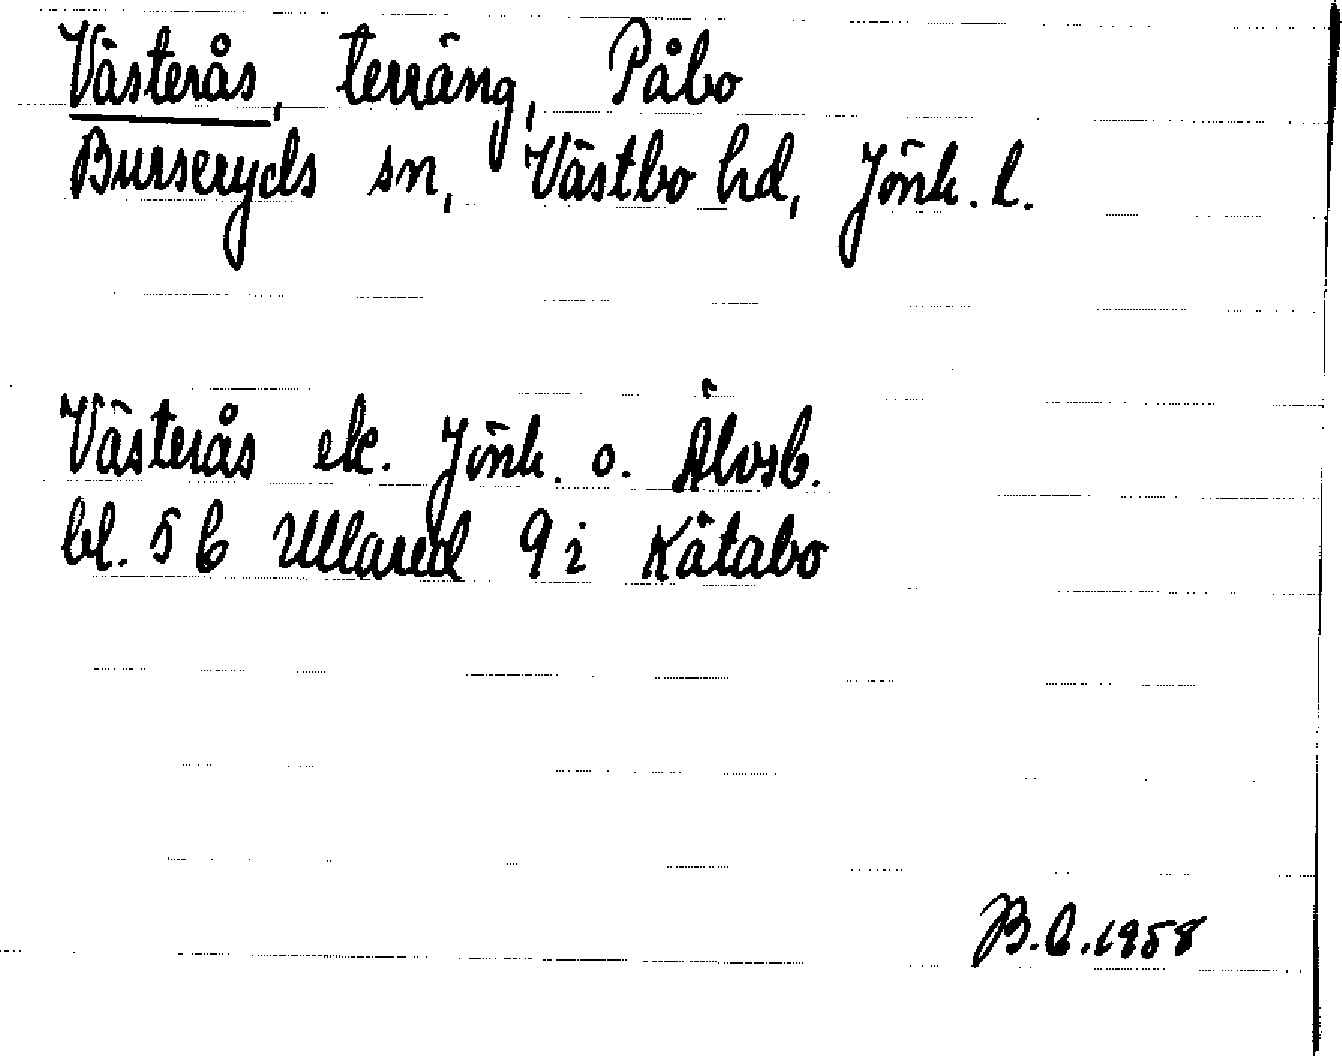 Västerås, terräng, Påbo
Burseryds sn, Västbo hd, Jönk. l.
Västerås ek. Jönk. o. Älvsb.
bl. 5 b Ullared 9 i Kåtabo
B.E.1958